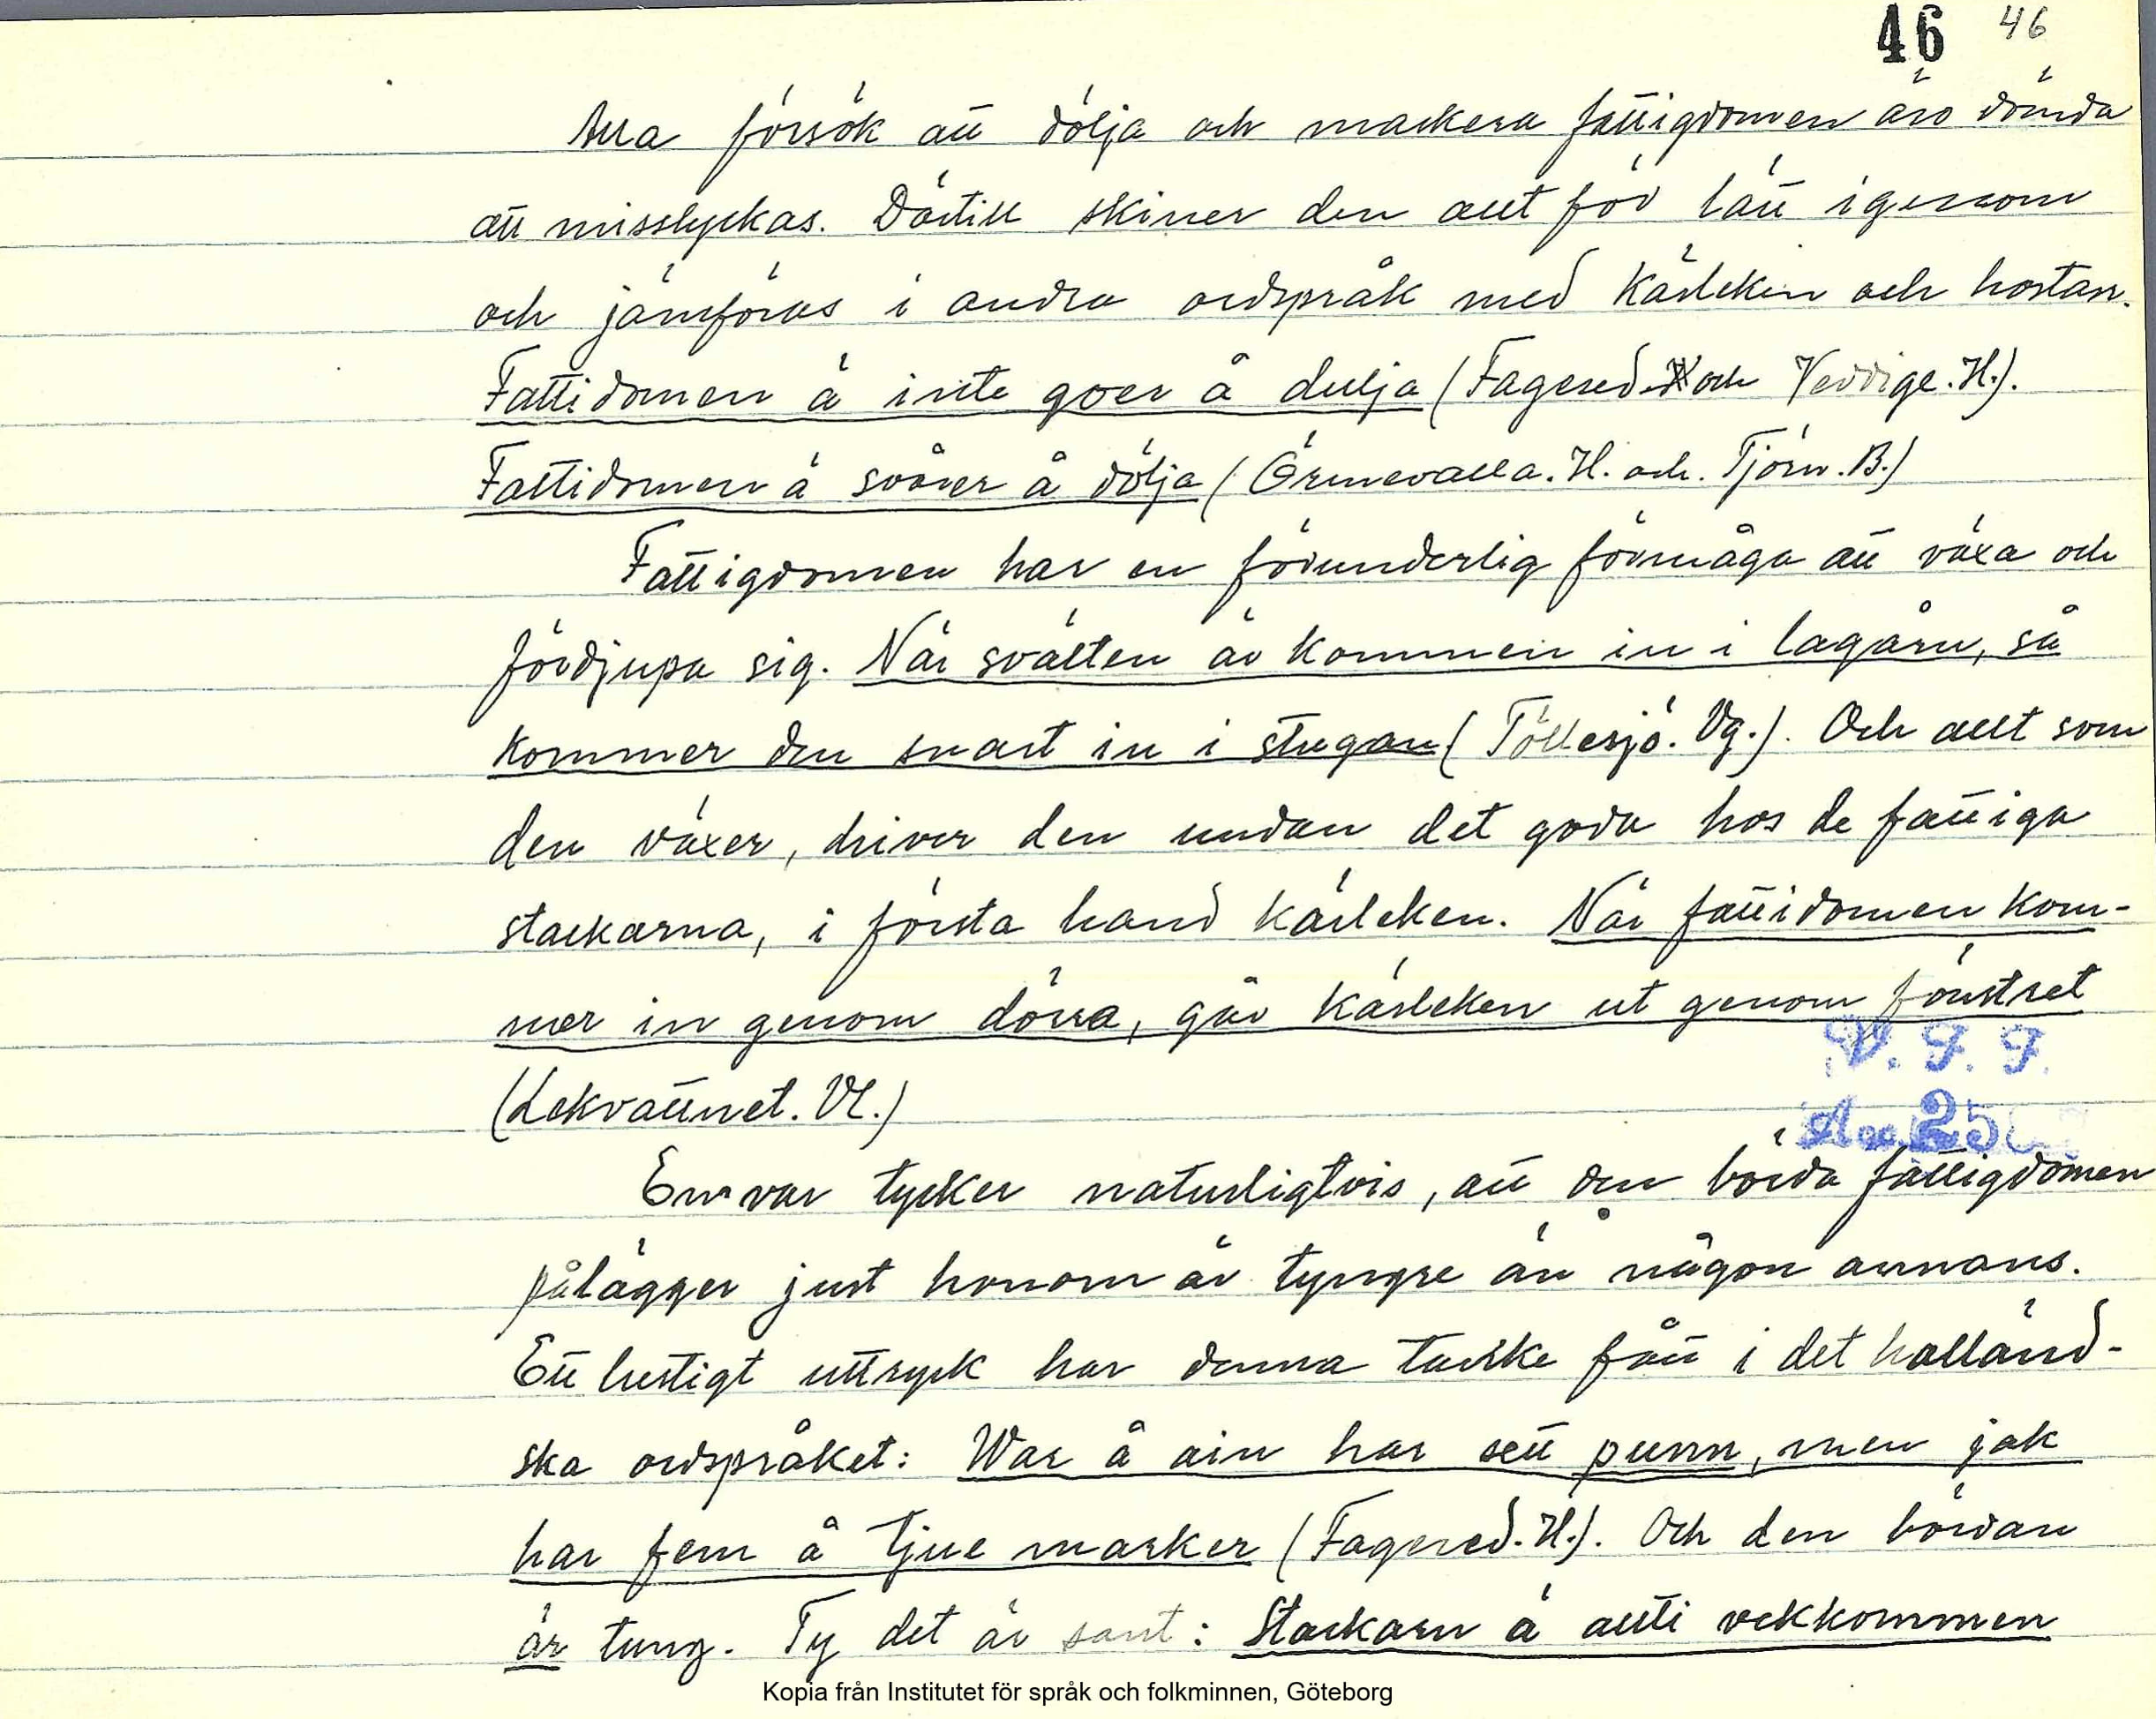 46 46
Alla försök att dölja och maskera fattigdomen äro dömda
att misslyckas. Därtill skiner den allt för lätt igenom
och jämföras i andra ordspråk med kärleken och hostan.
Fattidomen ä inte goer å dulja (Fagered. och Veddige. H.).
Fattidomen ä svårer å dölja (Grimevalla. H. och. Tjörn. B.)
Fattigdomen har en förunderlig förmåga att växa och
fördjupa sig. När svälten är kommen in i lagårn, så
kommer den snart in i stugan (Töllesjö. Vg.). Och allt som
den växer, driver den undan det goda hos de fattiga
stackarna, i första hand kärleken. När fattidomen kom-
mer in genom dörra, går kärleken ut genom fönstret
V. F. F.
(Lekvattnet. Vl.)
Acc. 25
Envar tycker naturligtvis, att den börda fattigdomen
pålägger just honom är tyngre än någon annans.
Ett lustigt uttryck har denna tanke fått i det halländ-
ska ordspråket: War å ain har sett punn, men jak
har fem å tjue marker (Fagered. H.). Och den bördan
är tung. Ty det är sant: Stackarn ä allti vekkommen
Kopia från Institutet för språk och folkminnen, Göteborg